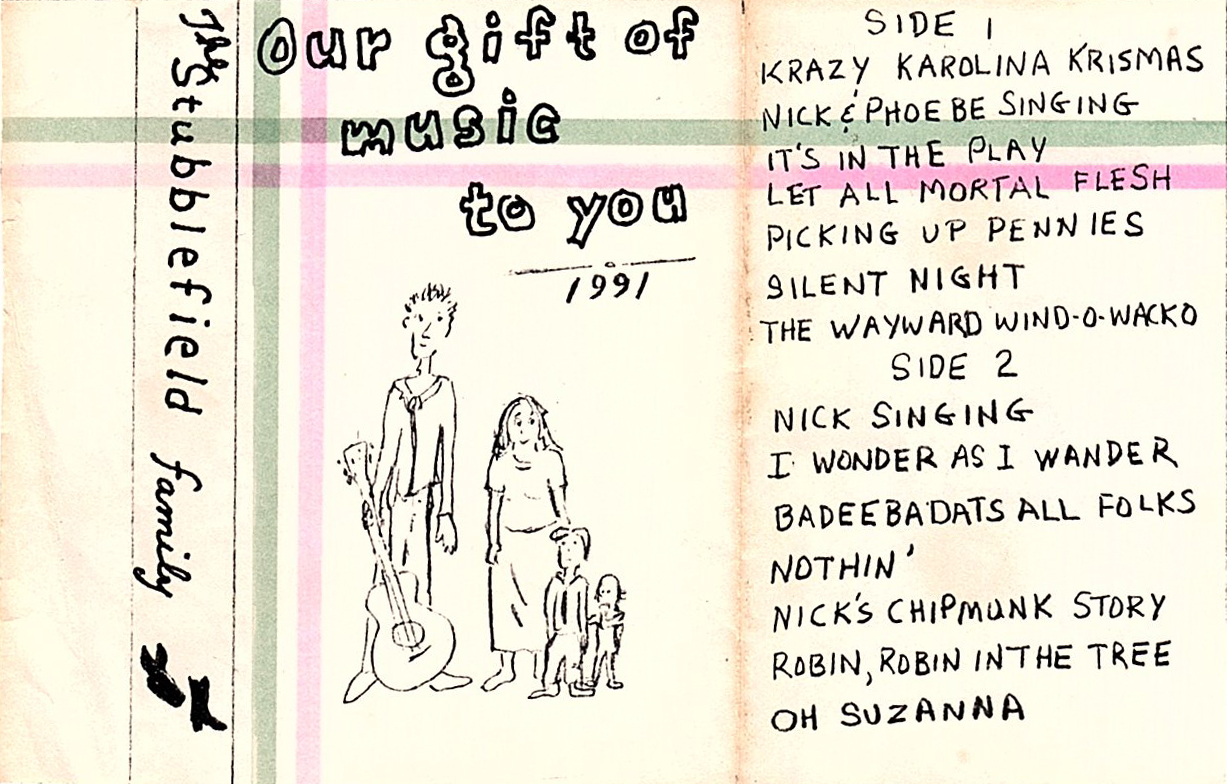 The Stubblefield family
Our gift of
music
to you
1991
SIDE 1
KRAZY KAROLINA KRISMAS
NICK & PHOEBE SINGING
IT'S IN THE PLAY
LET ALL MORTAL FLESH
PICKING UP PENNIES
SILENT NIGHT
THE WAYWARD WIND-O-WACKO
SIDE 2
NICK SINGING
I WONDER AS I WANDER
BADEEBA'DATS ALL FOLKS
NOTHIN'
NICK'S CHIPMUNK STORY
ROBIN, ROBIN IN THE TREE
OH SUZANNA